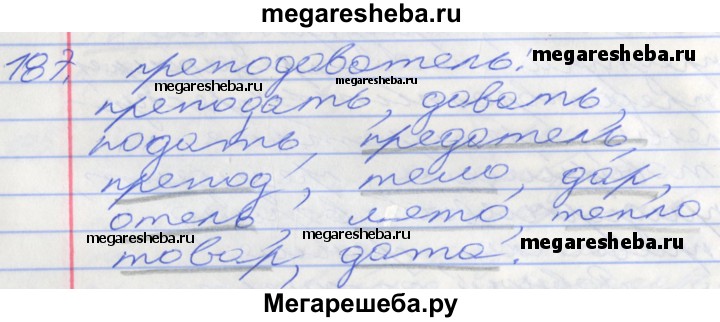 megaresheba.ru
187. преподаватель:
megaresheba.ru
megaresheba.ru
megaresheba.ru
преподать, давать,
подать, предатель,
препод, тело, дар,
отель, лето, тепло
megaresheba.ru
megaresheba.ru
megaresheba.ru
товар, дата.
Мегарешеба.ру